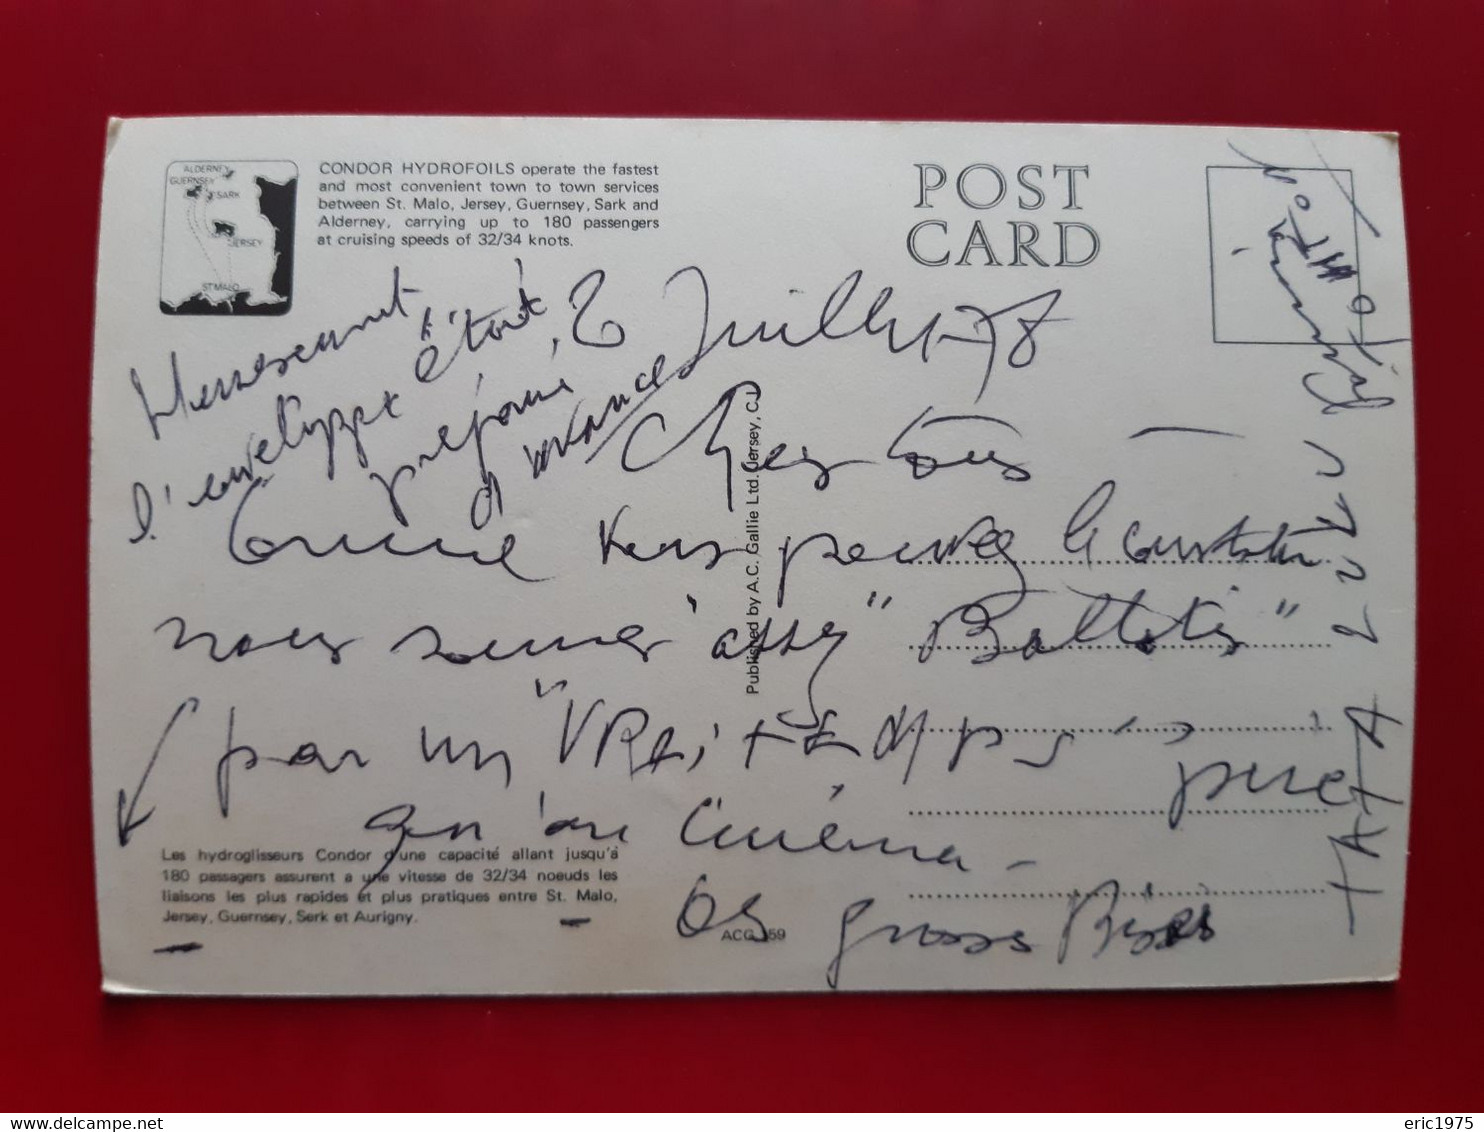 ALDERNEY
GUERNSEY
SARK
JERSEY
ST MALO
CONDOR HYDROFOILS operate the fastest
and most convenient town to town services
between St. Malo, Jersey, Guernsey, Sark and
Alderney, carrying up to 180 passengers
at cruising speeds of 32/34 knots.
POST
CARD
Heureusement,
l'enveloppe était
préparée
d'avance
2 Juillet 78
Chers tous
Comme vous pouvez le constater
nous sommes "assez" "Ballotés"
par un "VRAI TEMPS"
qu'au Cinéma -
Les hydroglisseurs Condor d'une capacité allant jusqu'á
180 passagers assurent a une vitesse de 32/34 noeuds les
liaisons les plus rapides et plus pratiques entre St. Malo,
Jersey, Guernsey, Serk et Aurigny.
ACG 59
grosses Bises
Published by A.C. Gallie Ltd. Jersey, C.I.
TATA LULU
eric1975